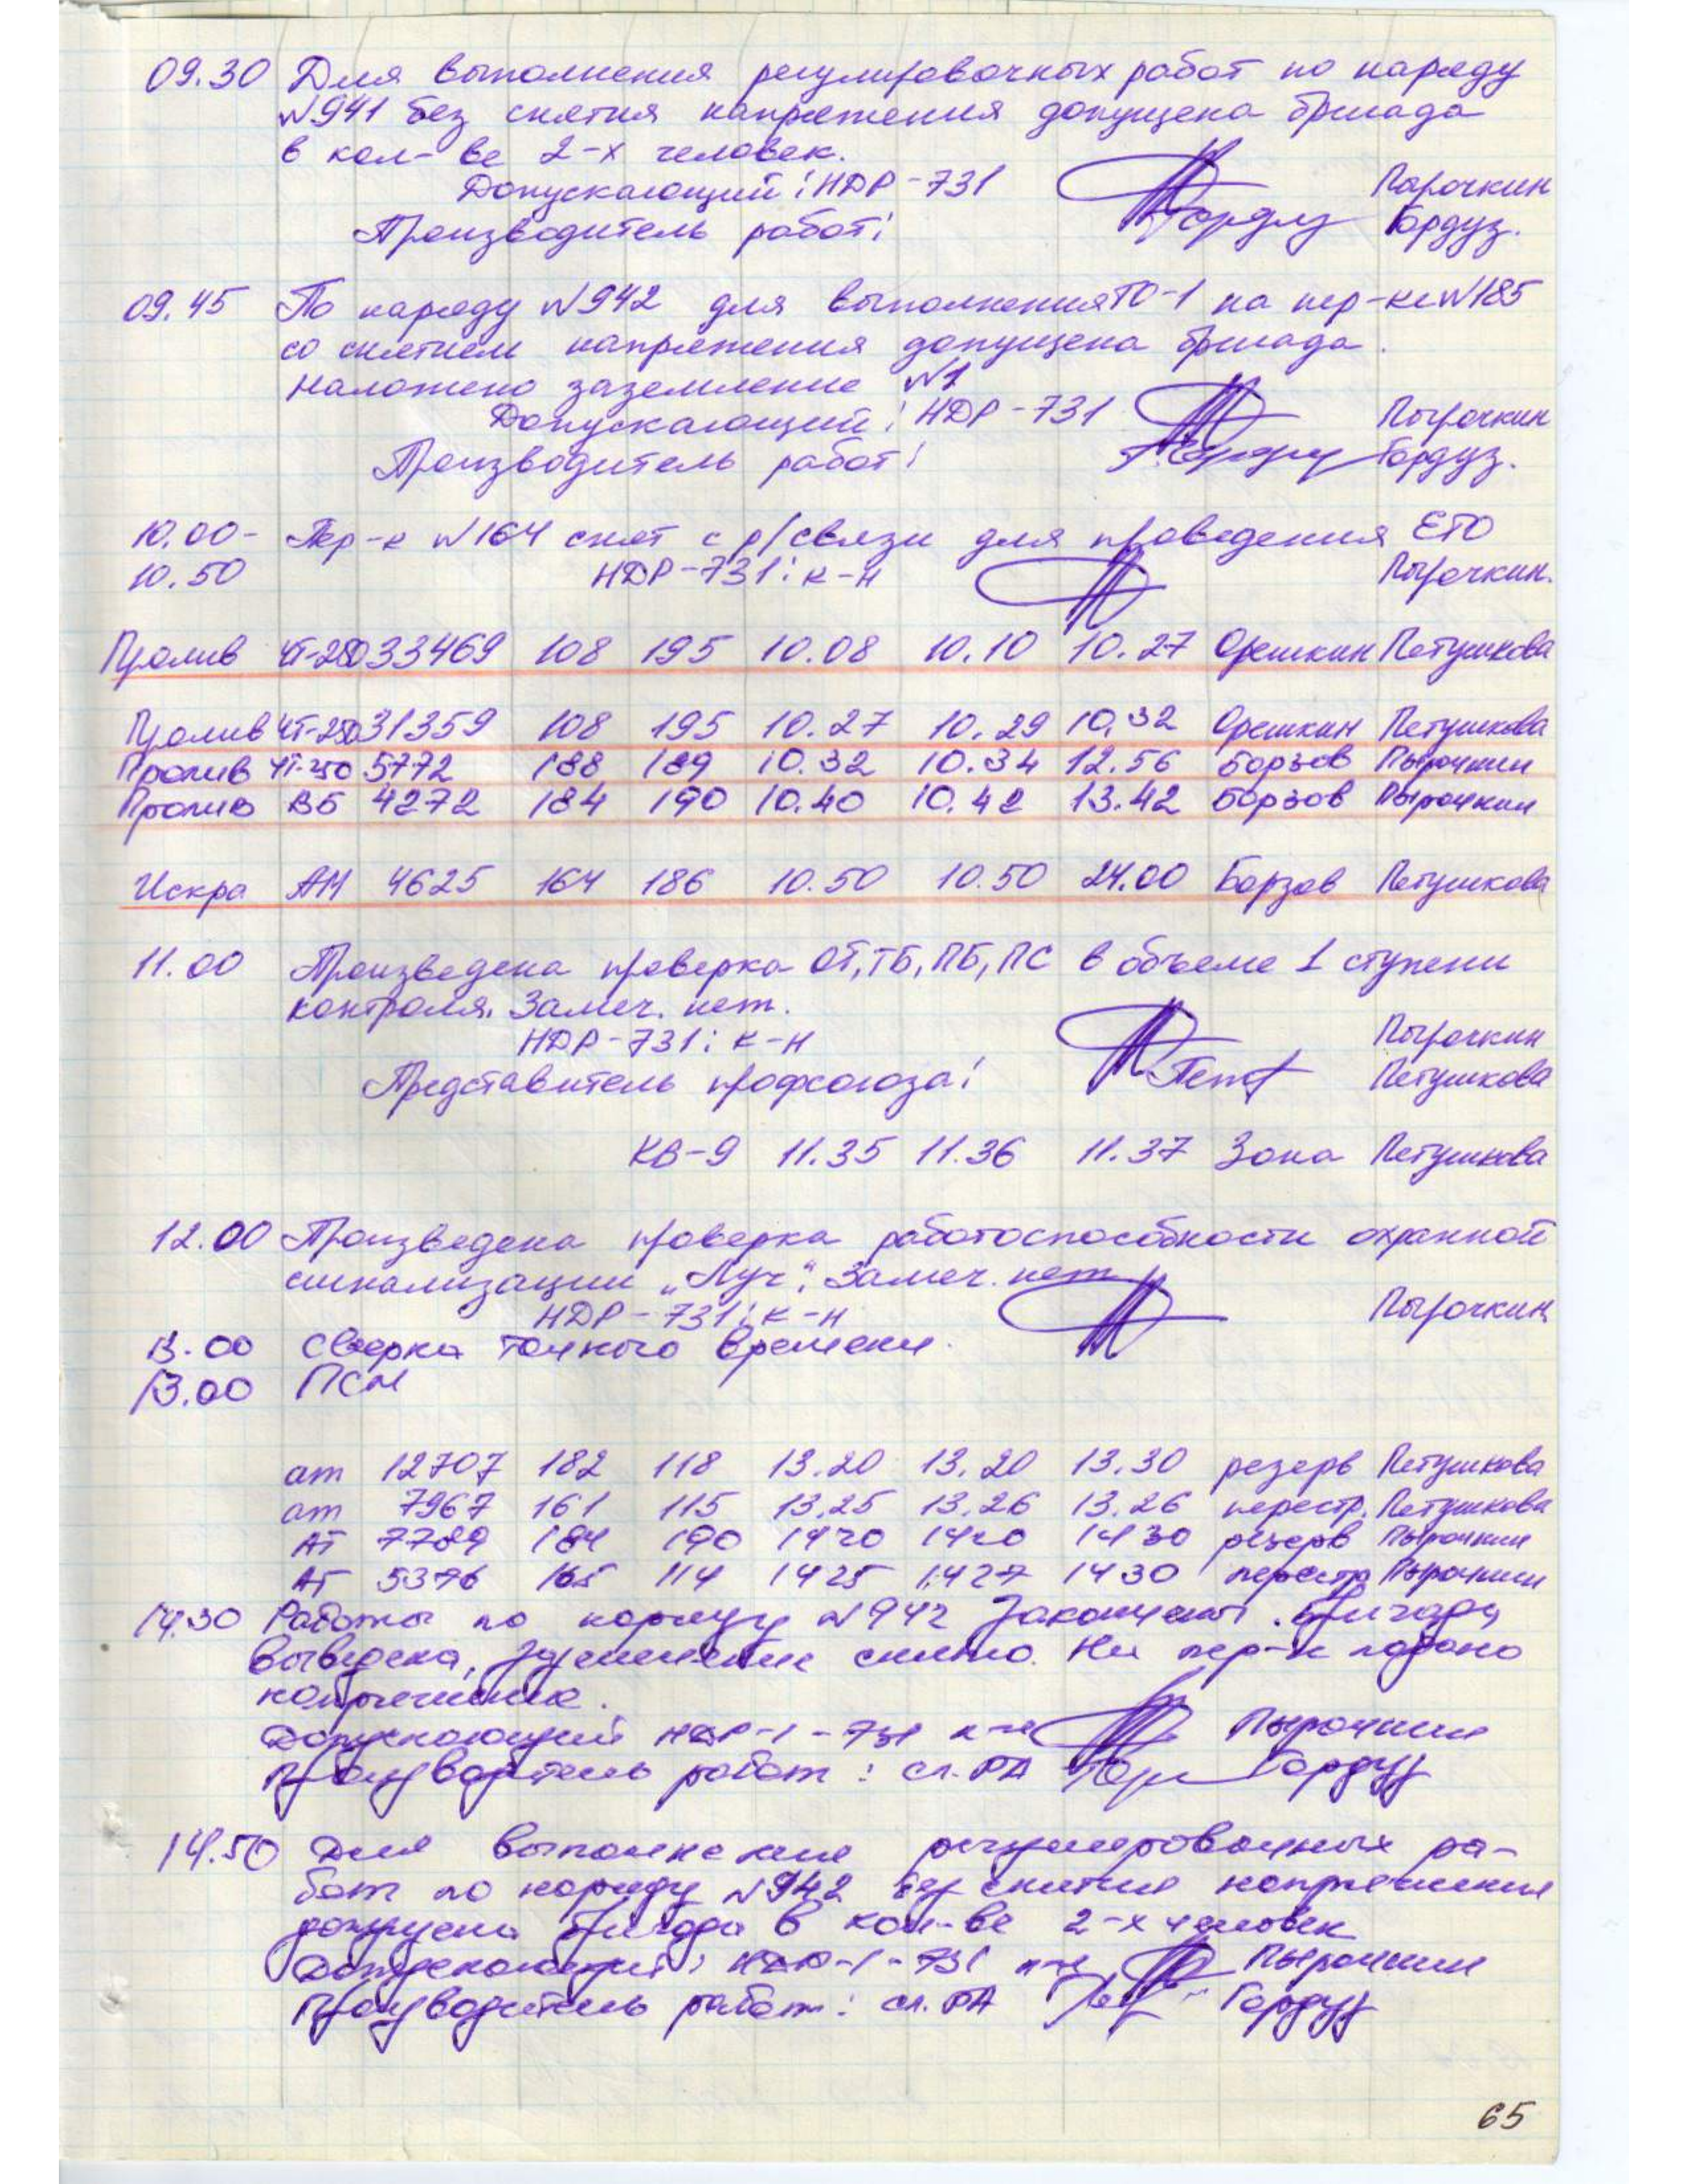 09.30 Для выполнения регулировочных работ по наряду
№941 без снятия напряжения допущена бригада
в кол-ве 2-х человек.
Допускающий: НДР-731 Пырочкин
Производитель работ: Гордуз.
09.45 По наряду №942 для выполнения ТО-1 на пер-ке №185
со снятием напряжения допущена бригада.
Наложено заземление №1
Допускающий: НДР-731 Пырочкин
Производитель работ: Гордуз.
10.00- Пер-к №164 снят с р/связи для проведения ЕТО
10.50 НДР-731: к-н Пырочкин.
Пролив ЧТ-250 33469 108 195 10.08 10.10 10.27 Орешкин Петушкова
Пролив ЧТ-250 31359 108 195 10.27 10.29 10.32 Орешкин Петушкова
Пролив ЧТ-250 5772 188 189 10.32 10.34 12.56 Борзов Пырочкин
Пролив ВБ 4272 184 190 10.40 10.42 13.42 Борзов Пырочкин
Искра АМ 4625 164 186 10.50 10.50 24.00 Борзов Петушкова
11.00 Произведена проверка ОТ, ТБ, ПБ, ПС в объеме 1 ступени
контроля. Замеч. нет.
НДР-731: к-н Пырочкин
Представитель профсоюза: Петушкова
КВ-9 11.35 11.36 11.37 Зона Петушкова
12.00 Произведена проверка работоспособности охранной
сигнализации „Луч“. Замеч. нет
НДР-731: к-н Пырочкин
13.00 Сверка точного времени.
13.00 ПСМ
ат 12707 182 118 13.20 13.20 13.30 резерв Петушкова
ат 7967 161 115 13.25 13.26 13.26 перестр. Петушкова
АТ 7789 184 190 1420 1420 1430 резерв Пырочкин
АТ 5376 165 114 1425 1427 1430 перестр Пырочкин
14.30 Работы по наряду №942 закончены. Бригада
выведена, заземление снято. На пер-к подано
напряжение.
Допускающий НДР-1-731 к-н Пырочкин
Производитель работ: сл. РА Гордуз
14.50 Для выполнения регулировочных ра-
бот по наряду №942 без снятия напряжения
допущена бригада в кол-ве 2-х человек
Допускающий: НДР-1-731 к-н Пырочкин
Производитель работ: сл. РА Гордуз
65